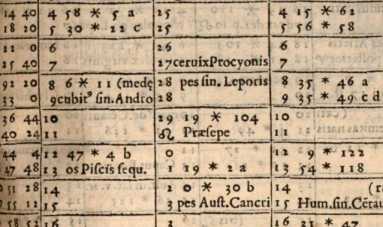 4 40 4 58 * 5 a 25 4 15 * 62
18 20 5 30 * 22 c 25 5 56 * 58
11 0 6 26 6
25 40 7 27 ceruix Procyonis 7
92 10 8 6 * 11 (medę 28 pes sin. Leporis 8 35 * 46 a
13 0 9 cubit⁹ sin. Andro 28 9 35 * 49 c d
36 44 10 29 19 * 104 10
40 24 11 ♌ Præsepe 11
44 4 12 47 * 4 b 0 12 9 * 122
47 48 13 os Piscis sequ. 1 19 * 2 a 13 54 * 118
51 28 14 2 0 * 30 b 14
55 12 15 3 pes Aust. Cancri 15 Hum. sin. Cetau
58 52 16 16 31 * 47